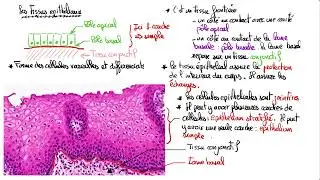 Les Tissus épithéliaux
Pôle apical
Pôle basal
Ici 1 couche
⇒ simple
Tissu conjonctif
* Forme des cellules variables et différencié
* C'est un tissu frontière
- un côté au contact avec une cavité
pôle apical
- un côté au contact de la lame
basale : pôle basale. La lame basale
repose sur un tissu conjonctif
* Le tissu épithélial assure la protection
de l'intérieur du corps. Il assure les
échanges.
* Les cellules épithéliales sont jointives
* Il peut y avoir plusieurs couches de
cellules : épithélium stratifié. Il peut
y avoir une seule couche : épithélium
simple.
Tissu conjonctif
Lame basale